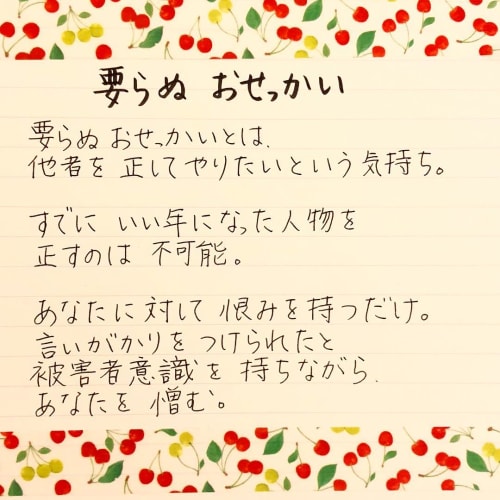 要らぬ おせっかい
要らぬ おせっかいとは、
他者を 正してやりたいという 気持ち。
すでに いい年になった人物を
正すのは 不可能。
あなたに対して 恨みを持つだけ。
言いがかりを つけられたと
被害者意識を 持ちながら、
あなたを 憎む。